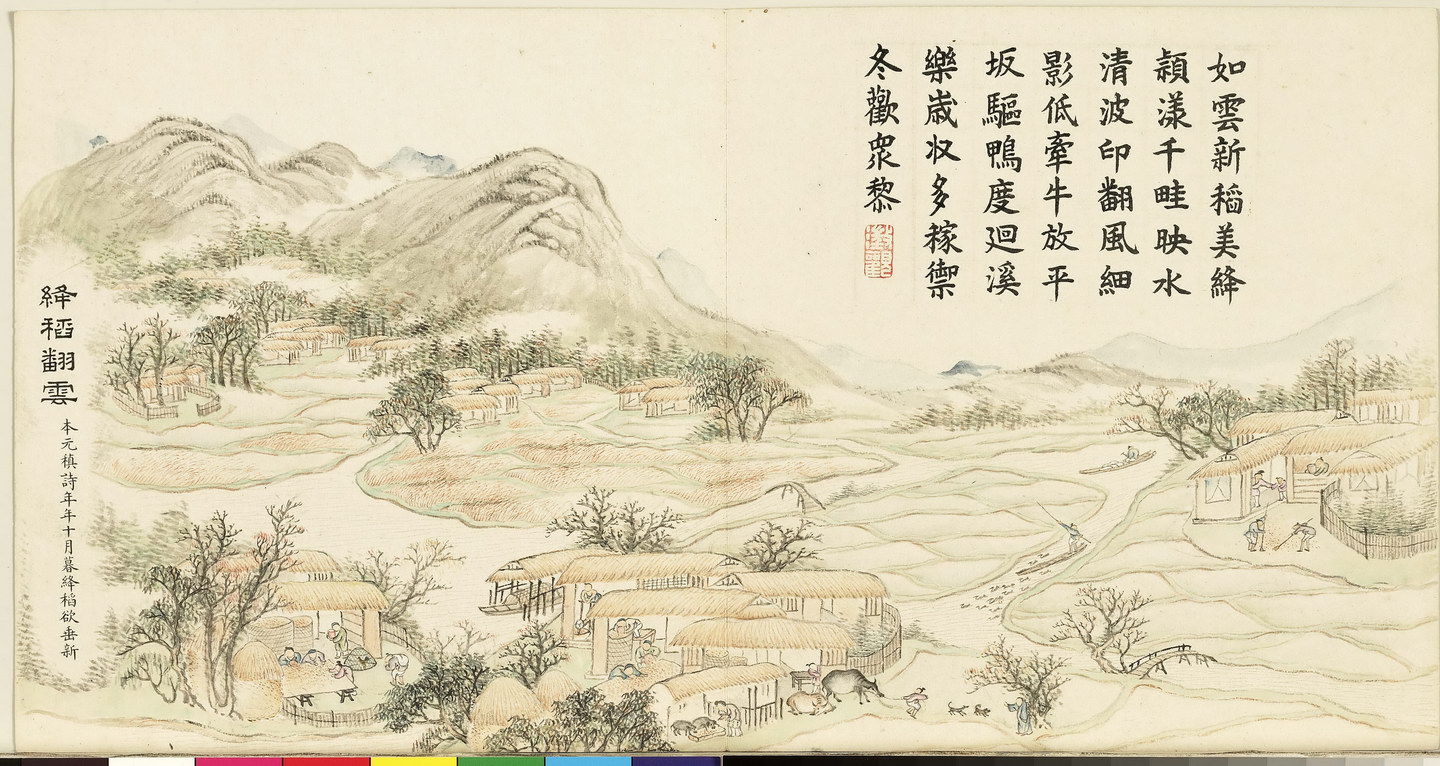 如雲新稻美絳
穎漾千畦映水
清波印翻風細
影低牽牛放平
坂驅鴨度迴溪
樂歲收多稼禦
冬歡眾黎
絳稻翻雲
本元稹詩年年十月暮絳稻欲垂新